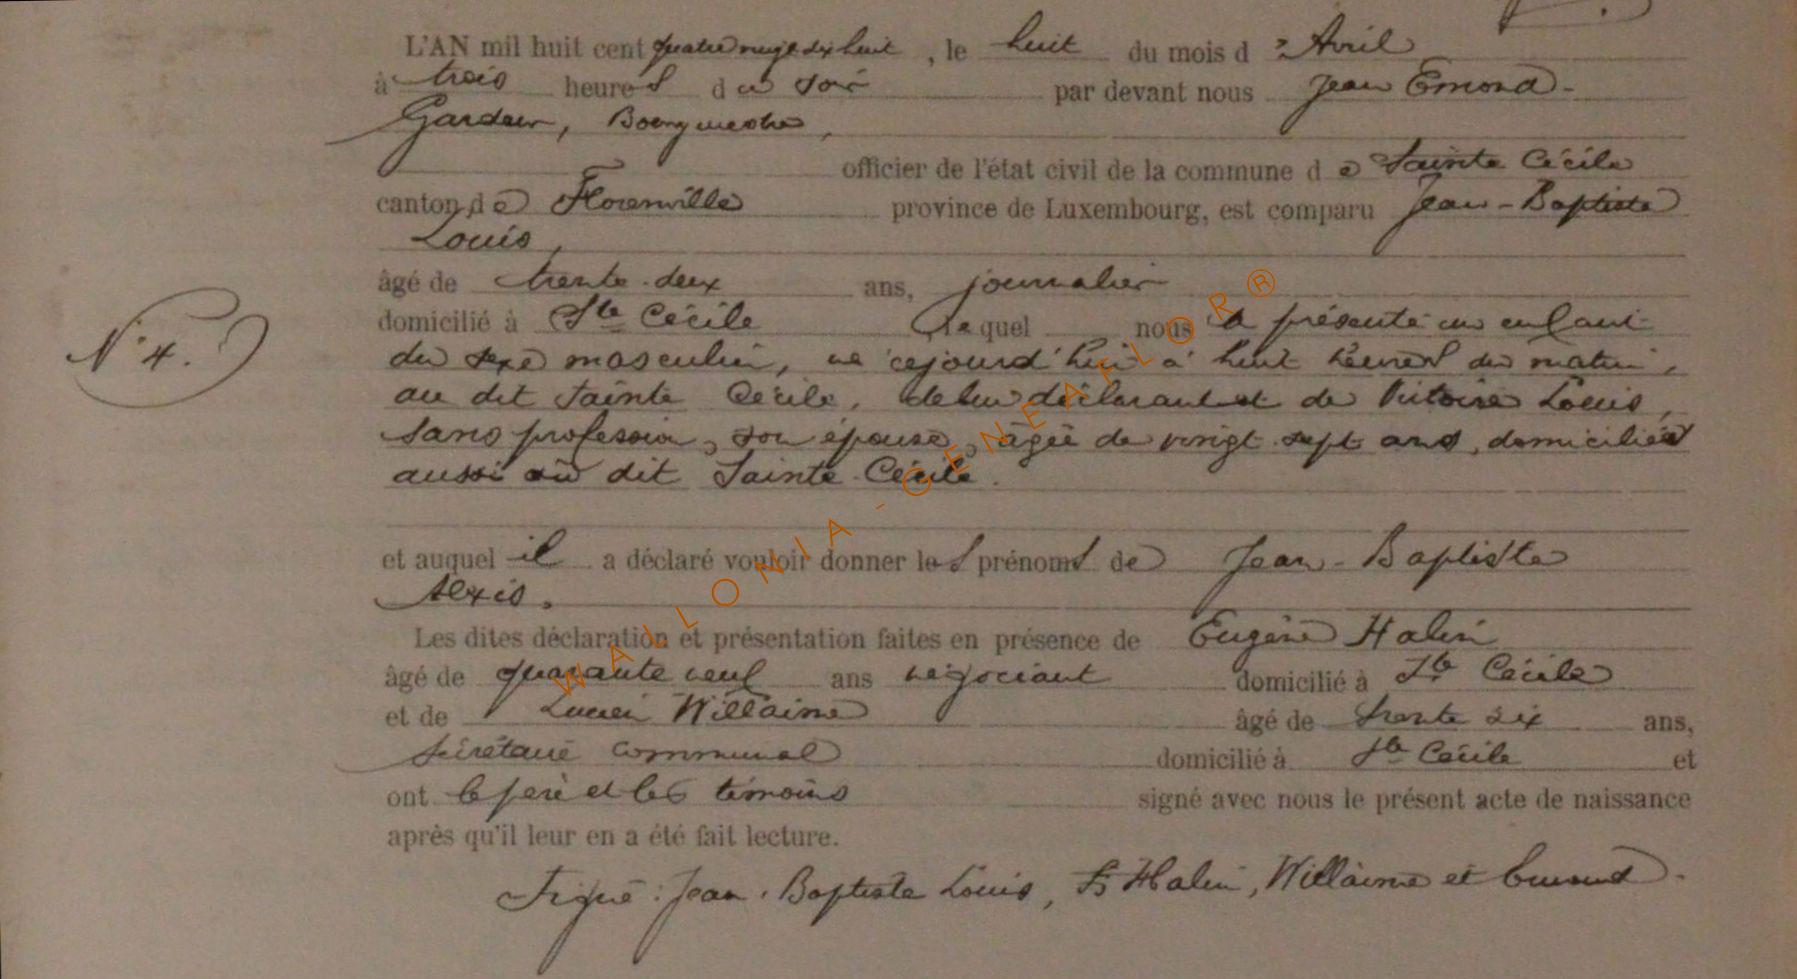 L'AN mil huit cent quatre vingt dix huit, le huit du mois d'Avril
à trois heures du soir par devant nous Jean Emond-
Gardeur, Bourgmestre,
officier de l'état civil de la commune de Sainte Cécile
canton de Florenville province de Luxembourg, est comparu Jean-Baptiste
Louis,
âgé de trente-deux ans, journalier
domicilié à Ste Cécile lequel nous a présenté un enfant
N° 4.
du sexe masculin, né cejourd'hui à huit heures du matin,
au dit Sainte Cécile, de lui déclarant et de Victoire Louis,
sans profession, son épouse, âgée de vingt sept ans, domiciliée
aussi au dit Sainte-Cécile.
et auquel il a déclaré vouloir donner les prénoms de Jean-Baptiste
Alexis.
Les dites déclaration et présentation faites en présence de Eugène Halin
âgé de quarante neuf ans négociant domicilié à Ste Cécile
et de Lucien Willaime âgé de trente six ans,
secrétaire communal domicilié à Ste Cécile et
ont le père et les témoins signé avec nous le présent acte de naissance
après qu'il leur en a été fait lecture.
Signé: Jean-Baptiste Louis, Halin, Willaime et Emond.
WALLONIA-GENEAFLOR®